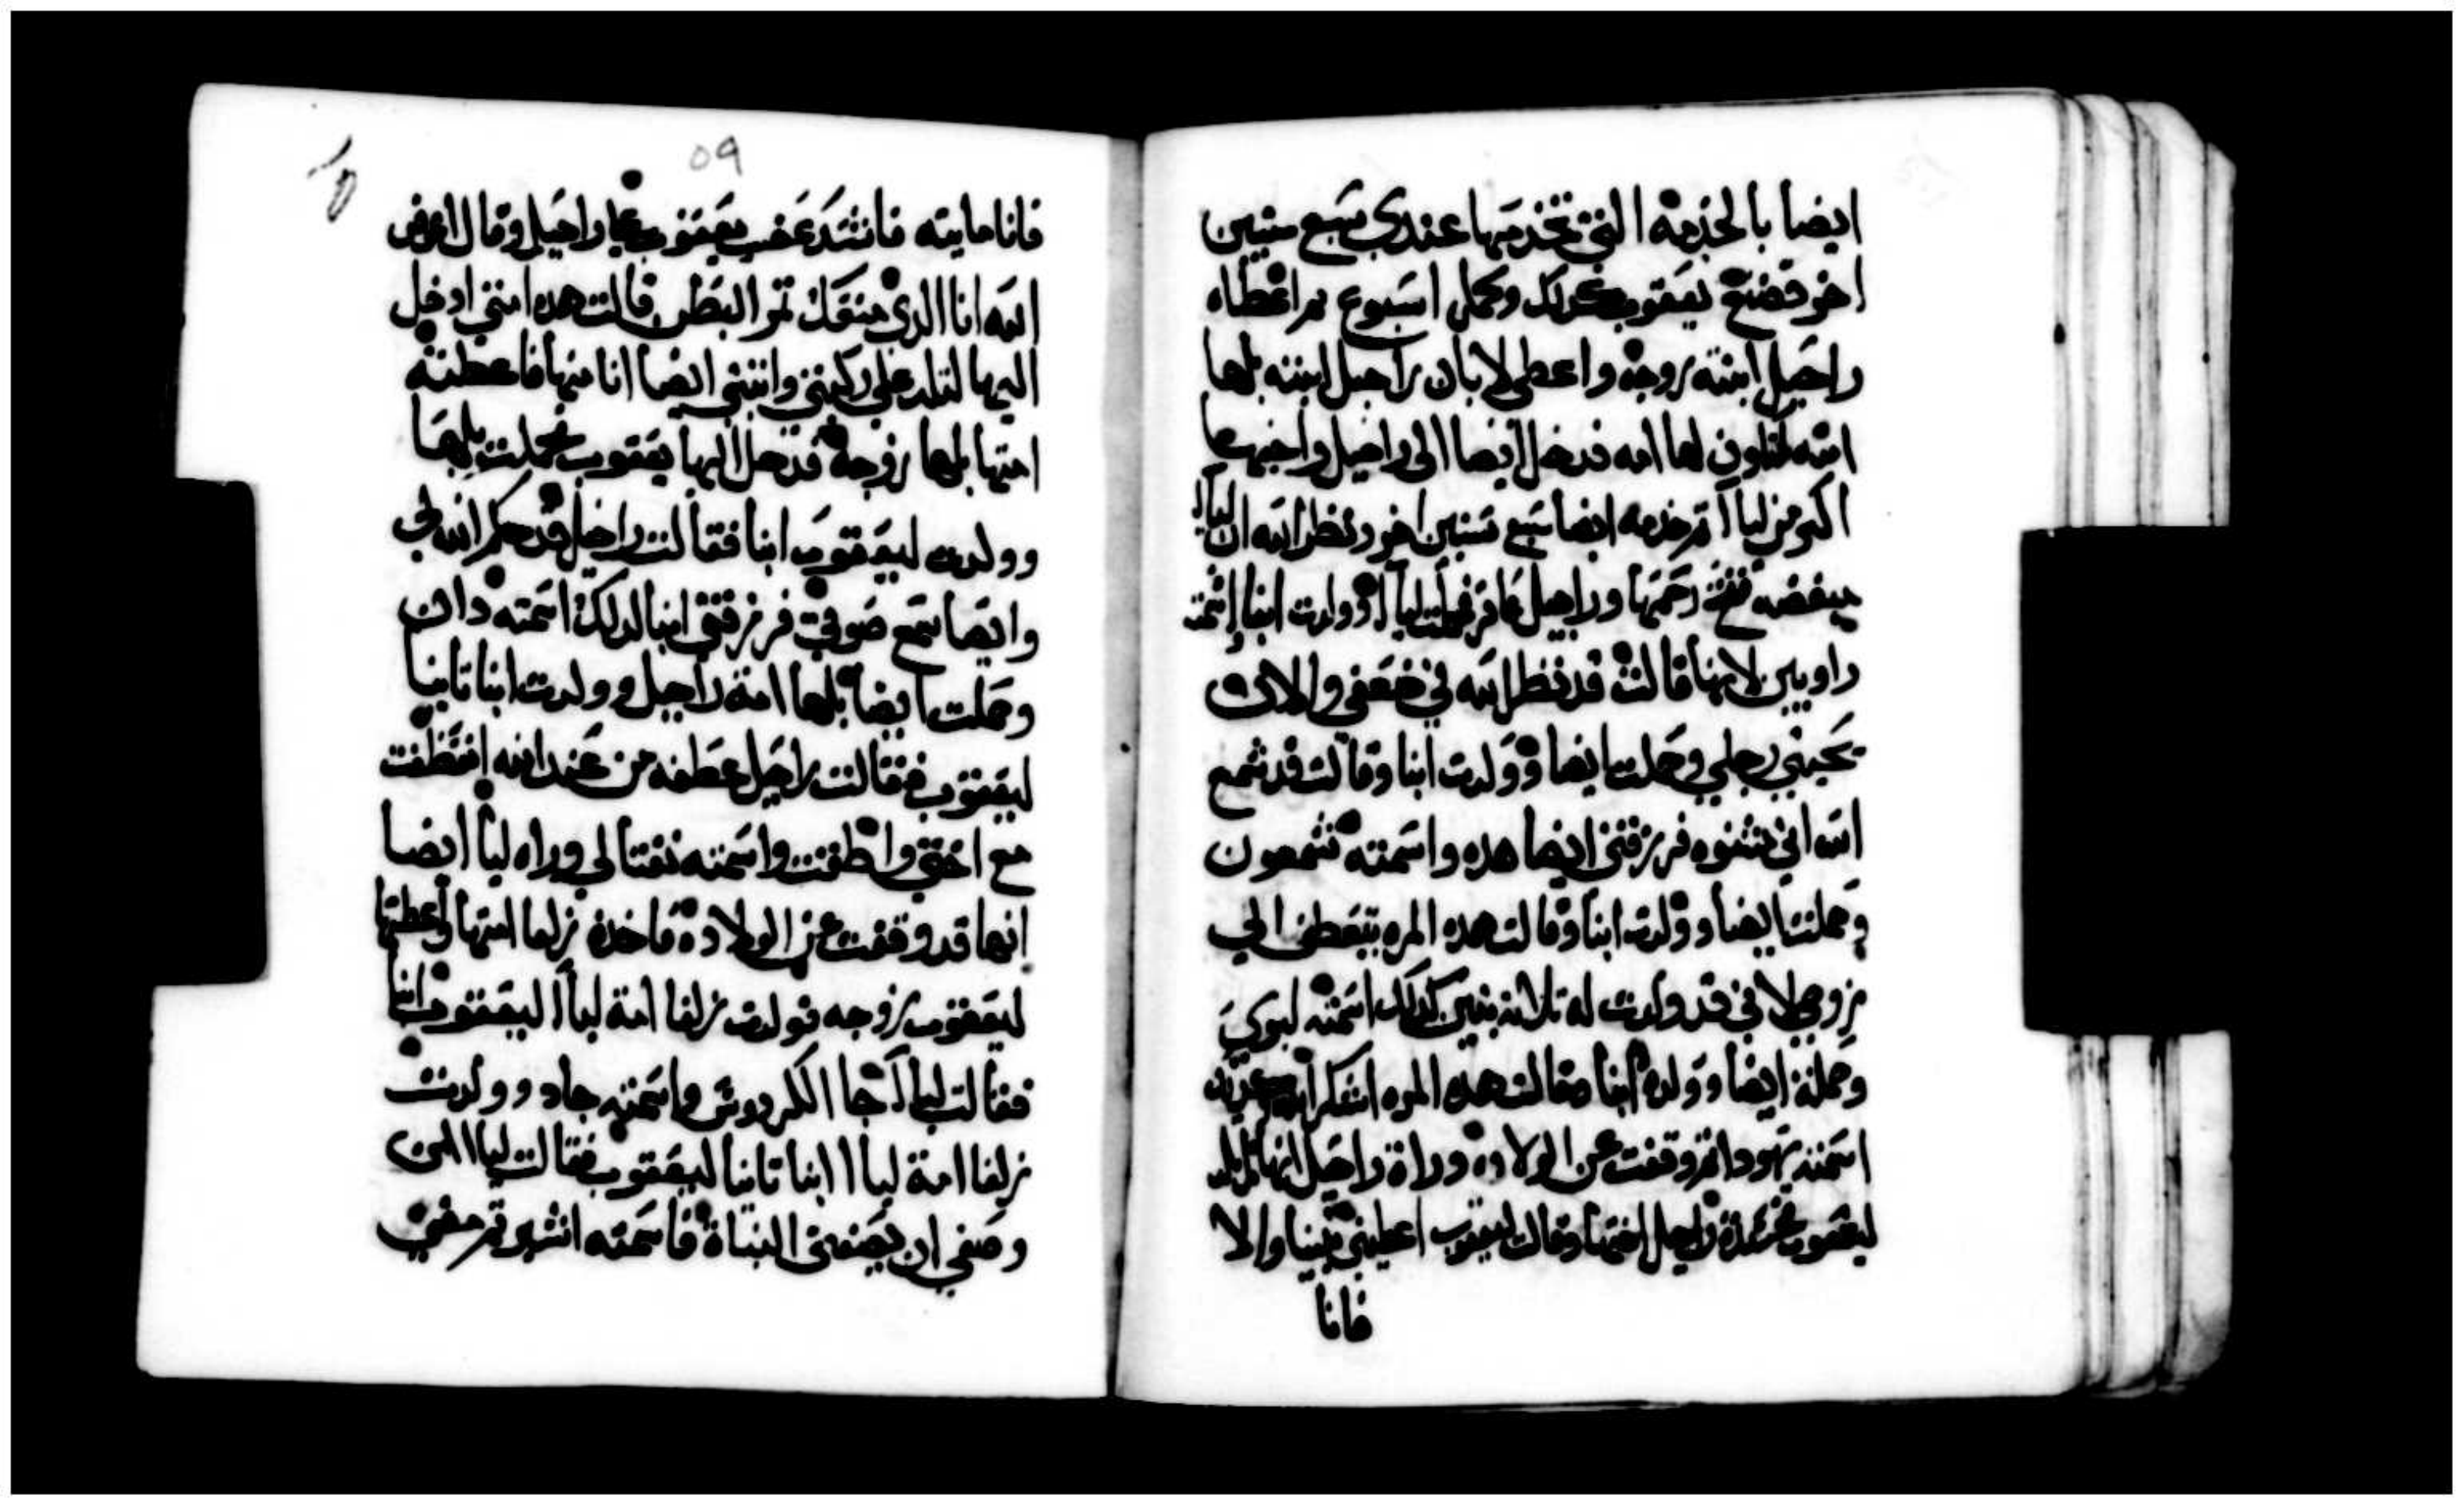 ايضا بالخدمة التي تخدمها عندي سبع سنين
اخر فصنع يعقوب كدلك وكمل اسبوع تم اعطاه
راحيل ابنته زوجة واعطى لابان راحيل ابنته بلها
امته لتكون لها امه فدخل ايضا الى راحيل واحبها
اكتر من ليا تم خدمه ايضا سبع سنين اخر ونظر الله ان ليا
مبغضه ففتح رحمها وراحيل عاقر فحبلت ليا وولدت ابنا اسمته
راوبين لانها قالت قد نظر الله في ضعفي والان
يحبني رجلي وحملت ايضا وولدت ابنا وقالت قد سمع
الله اني مشنوه فرزقني ايضا هده واسمته شمعون
وحملت ايضا وولدت ابنا وقالت هده المره يتعطف الي
زوجي لاني قد ولدت له تلاته بنين كدلك اسمته ليوي
وحملة ايضا وولدة ابنا وقالت هده المره اشكر الله
اسمته يهودا تم وقفت عن الولاده وراة راحيل انها لم تلد
ليعقوب راحيل اختها وقالت ليعقوب اعطيني بنينا والا
فانا
٥٩
فانا مايته فاشتد غضب يعقوب على راحيل وقال اعوض
الله انا الدي منعك تمر البطن قالت هده امتي ادخل
اليها لتلد على ركبتي وابتني ايضا انا منها فاعطته
امتها بلها زوجة فدخل اليها يعقوب فحملت بلها
وولدت ليعقوب ابنا فقالت راحيل قد حكم الله لي
وايضا سمع صوتي فرزقني ابنا لدلك اسمته دان
وحملت ايضا بلها امة راحيل وولدت ابنا تانيا
ليعقوب فقالت راحيل عطفه من عند الله انعطفت
مع اختي واطقت واسمته نفتالي وراه ليا ايضا
انها قد وقفت عن الولادة فاخدة زلفا امتها واعطتها
ليعقوب زوجه فولدت زلفا امة ليا ليعقوب ابنا
فقالت ليا جا الكردوس واسمته جاد وولدت
زلفا امة ليا ابنا تانيا ليعقوب فقالت ليا الان
وصفي ان يصفني البناة فاسمته اشير تم مضى